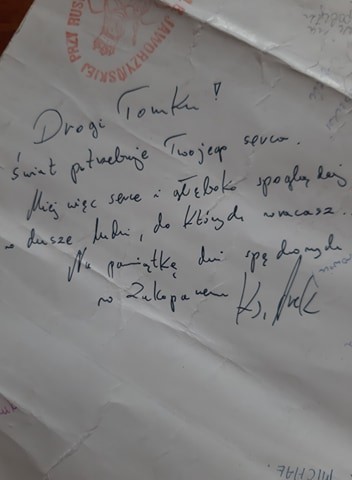 JAWORZYŃSKIEJ PRZY RUS
Drogi Tomku!
Świat potrzebuje Twojego serca.
Miej więc serce i głęboko spoglądaj
w dusze ludzi, do których wracasz.
Na pamiątkę dni spędzonych
w Zakopanem Ks.
MICHAŁ.